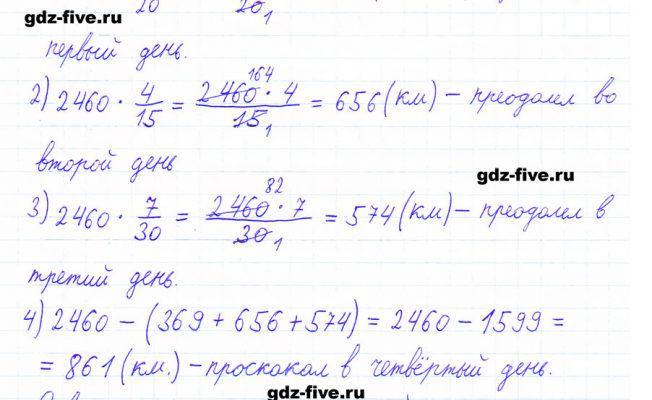 gdz-five.ru
20 20 1
gdz-five.ru
первый день.
2) 2460 · 4/15 = 2460 164 · 4 / 15 1 = 656 (км) – преодолел во
второй день
gdz-five.ru
3) 2460 · 7/30 = 2460 82 · 7 / 30 1 = 574 (км) – преодолел в
третий день.
4) 2460 – (369 + 656 + 574) = 2460 – 1599 =
= 861 (км.) – проскакал в четвёртый день.
gdz-five.ru